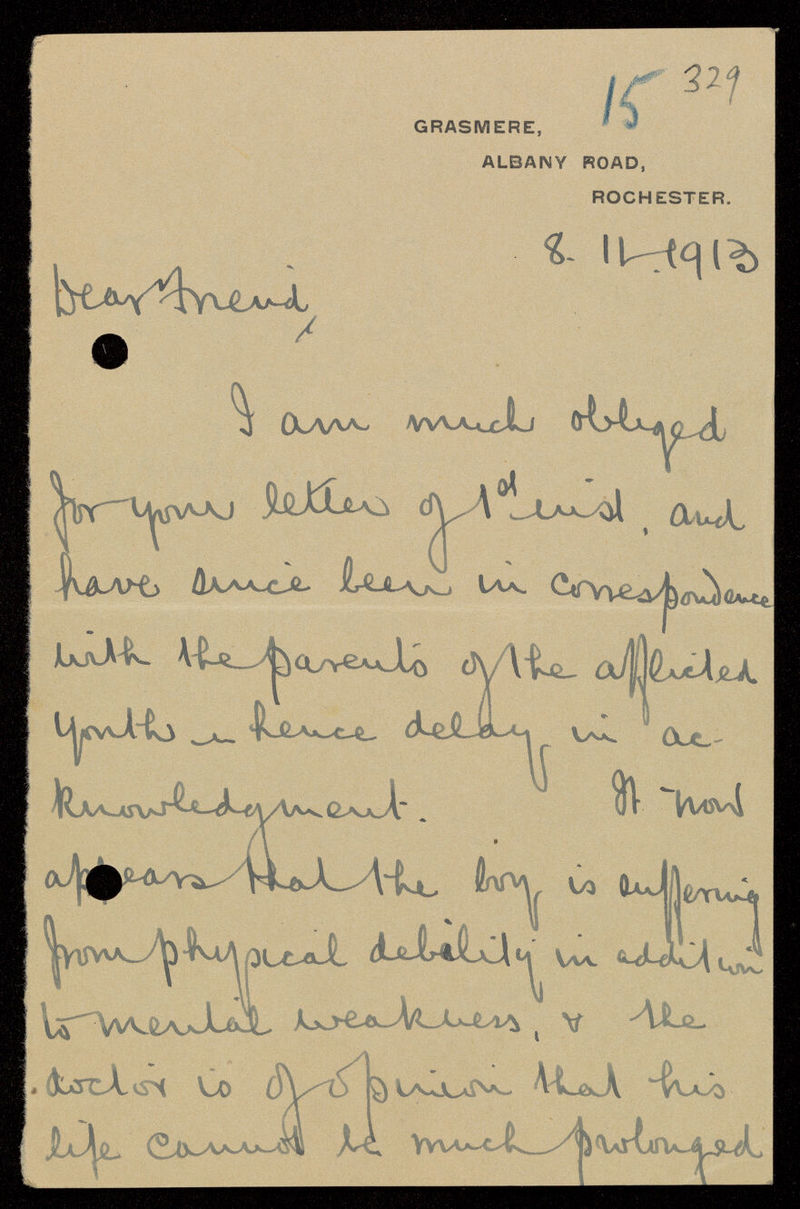 15 329
GRASMERE,
ALBANY ROAD,
ROCHESTER.
8. 11. 1913
Dear Friend,
I am much obliged
for your letter of 1st inst, and
have since been in correspondence
with the parents of the afflicted
youth - hence delay in ac-
knowledgment. It now
appears that the boy is suffering
from physical debility in addition
to mental weakness, & the
doctor is of opinion that his
life cannot be much prolonged